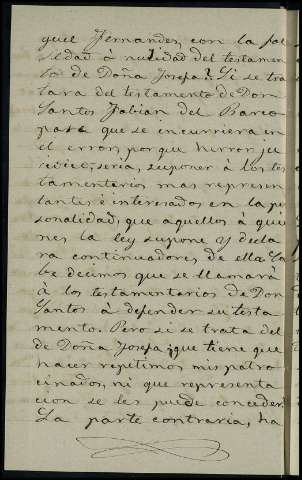 guel Fernandez, con la fal
sedad ó nulidad del testamen
to de Doña Josefa? Si se tra
tara del testamento de Don
Santos Fabian del Barco
pase que se incurriera en
el error, porque herror ju
ridico, seria, suponer á los tes
tamentarios mas represen
tantes é interesados en la per
sonalidad, que aquellos á quie
nes la ley supone y decla
ra continuadores de ella. Ca
be decimos que se llamará
á los testamentarios de Don
Santos á defender su testa
mento. Pero si se trata del
de Doña Josefa ¿que tiene que
hacer repitimos mis patro
cinados, ni que representa
cion se les puede conceder?
La parte contraria, ha